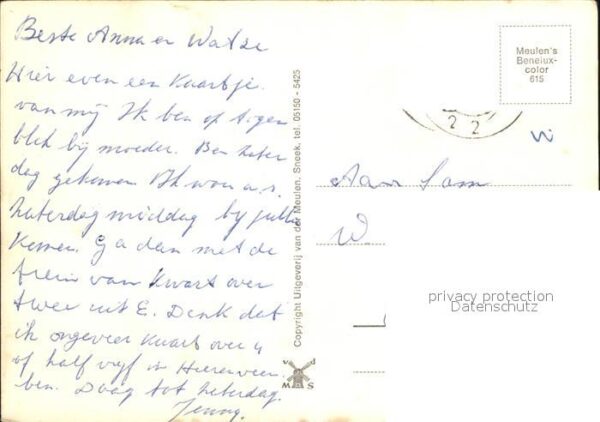 Beste Anna en Watze
Hier even een Kaartje.
van mij Ik ben op 't ogen
blik bij moeder. Ben zater
dag gekomen Ik wou a.s.
zaterdag middag by jullie
Komen. Ga dan met de
trein van Kwart over
twee uit E. Denk dat
ik ongeveer Kwart over 4
of half vyf in Heerenveen
ben. Daag tot zaterdag.
Jenny.
Copyright Uitgeverij van der Meulen, Sneek. tel. 05150 - 5425
V D
M S
Meulen's
Benelux-
color
615
2 2
Aan Fam
W
privacy protection
Datenschutz